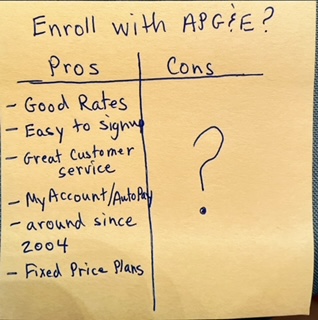 Enroll with APG&E?
Pros
Cons
- Good Rates
- Easy to signup
- Great Customer
service
- MyAccount/AutoPay
- around since
2004
- Fixed Price Plans
?